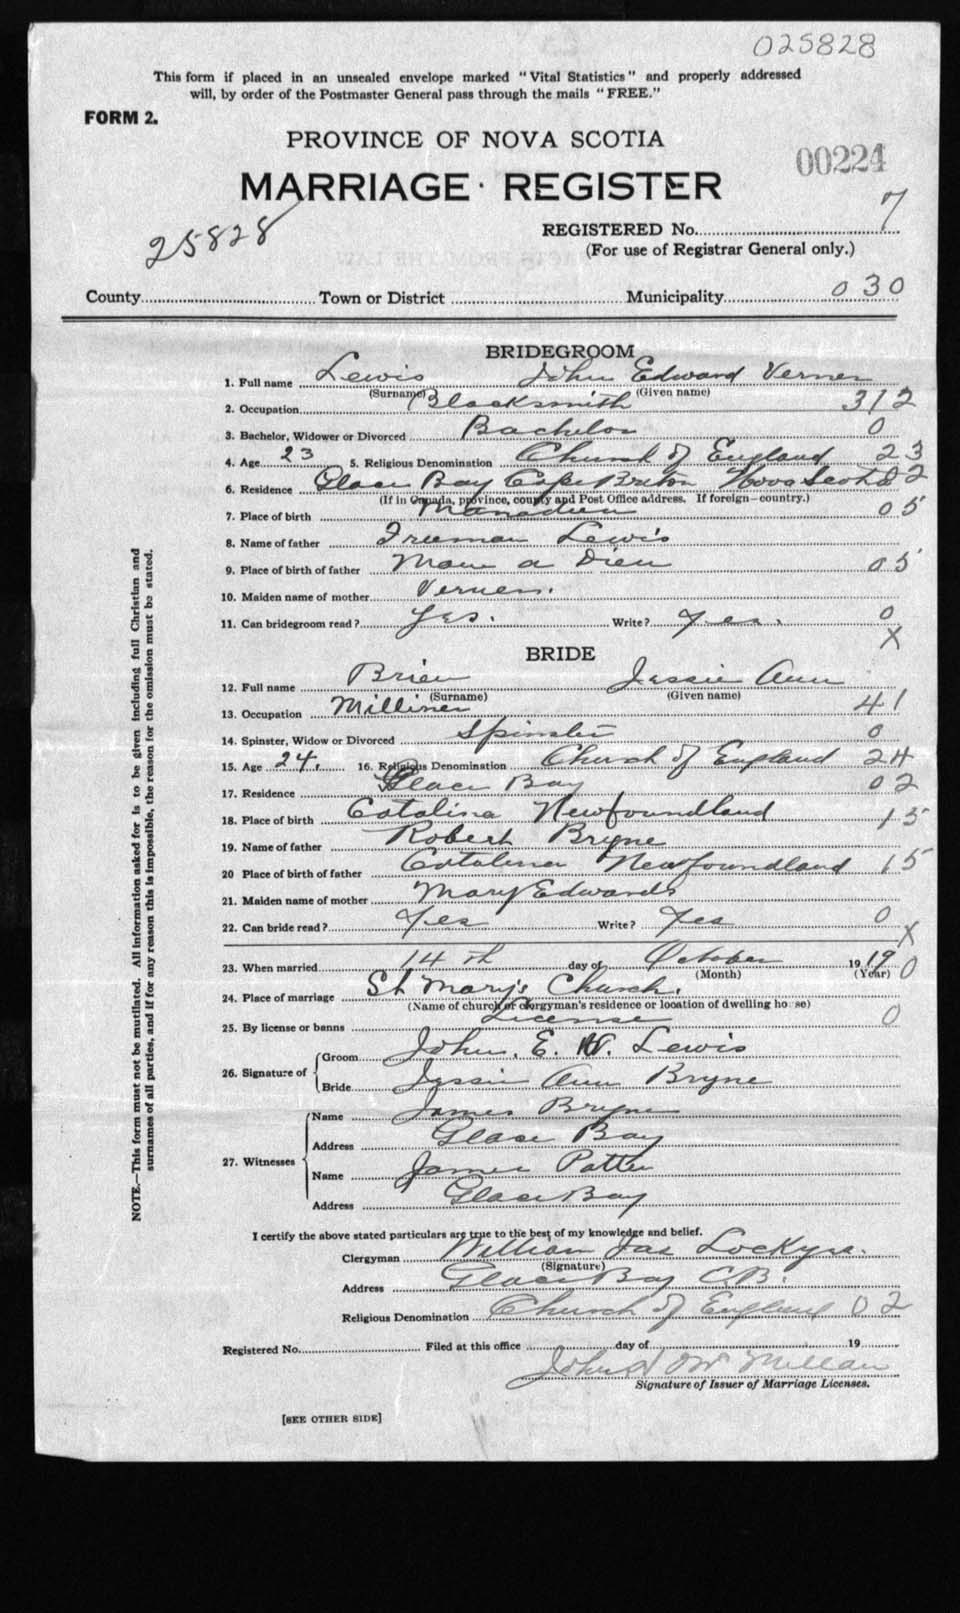 025828
This form if placed in an unsealed envelope marked "Vital Statistics" and properly addressed
will, by order of the Postmaster General pass through the mails "FREE."
FORM 2.
PROVINCE OF NOVA SCOTIA
00224
MARRIAGE REGISTER
25828
REGISTERED No. 7
(For use of Registrar General only.)
County Town or District Municipality 030
BRIDEGROOM
1. Full name Lewis John Edward Verner
(Surname) (Given name)
2. Occupation Blacksmith 312
3. Bachelor, Widower or Divorced Bachelor 0
4. Age 23 5. Religious Denomination Church of England 23
6. Residence Glace Bay Cape Breton Nova Scotia 02
(If in Canada, province, county and Post Office address. If foreign—country.)
7. Place of birth Manadieu 05
8. Name of father Freeman Lewis
9. Place of birth of father Main a Dieu 05
10. Maiden name of mother Verner.
11. Can bridegroom read? Yes. Write? Yes. 0
X
BRIDE
12. Full name Brien Jessie Ann
(Surname) (Given name)
13. Occupation Milliner 41
14. Spinster, Widow or Divorced Spinster 0
15. Age 24. 16. Religious Denomination Church of England 24
17. Residence Glace Bay 02
18. Place of birth Catalina Newfoundland 15
19. Name of father Robert Bryne
20 Place of birth of father Catalina Newfoundland 15
21. Maiden name of mother Mary Edwards
22. Can bride read? Yes Write? Yes 0
X
23. When married 14th day of October 1919 0
(Month) (Year)
24. Place of marriage St Mary's Church.
(Name of church or clergyman's residence or location of dwelling house)
25. By license or banns License 0
26. Signature of
Groom John. E. V. Lewis
Bride Jessie Ann Bryne
27. Witnesses
Name James Bryne
Address Glace Bay
Name James Potter
Address Glace Bay
I certify the above stated particulars are true to the best of my knowledge and belief.
Clergyman William Jas Lockyer.
(Signature)
Address Glace Bay C.B.
Religious Denomination Church of England 02
Registered No. Filed at this office day of 19
John
Signature of Issuer of Marriage Licenses.
[SEE OTHER SIDE]
NOTE.—This form must not be mutilated. All information asked for is to be given including full Christian and
surnames of all parties, and if for any reason this is impossible, the reason for the omission must be stated.